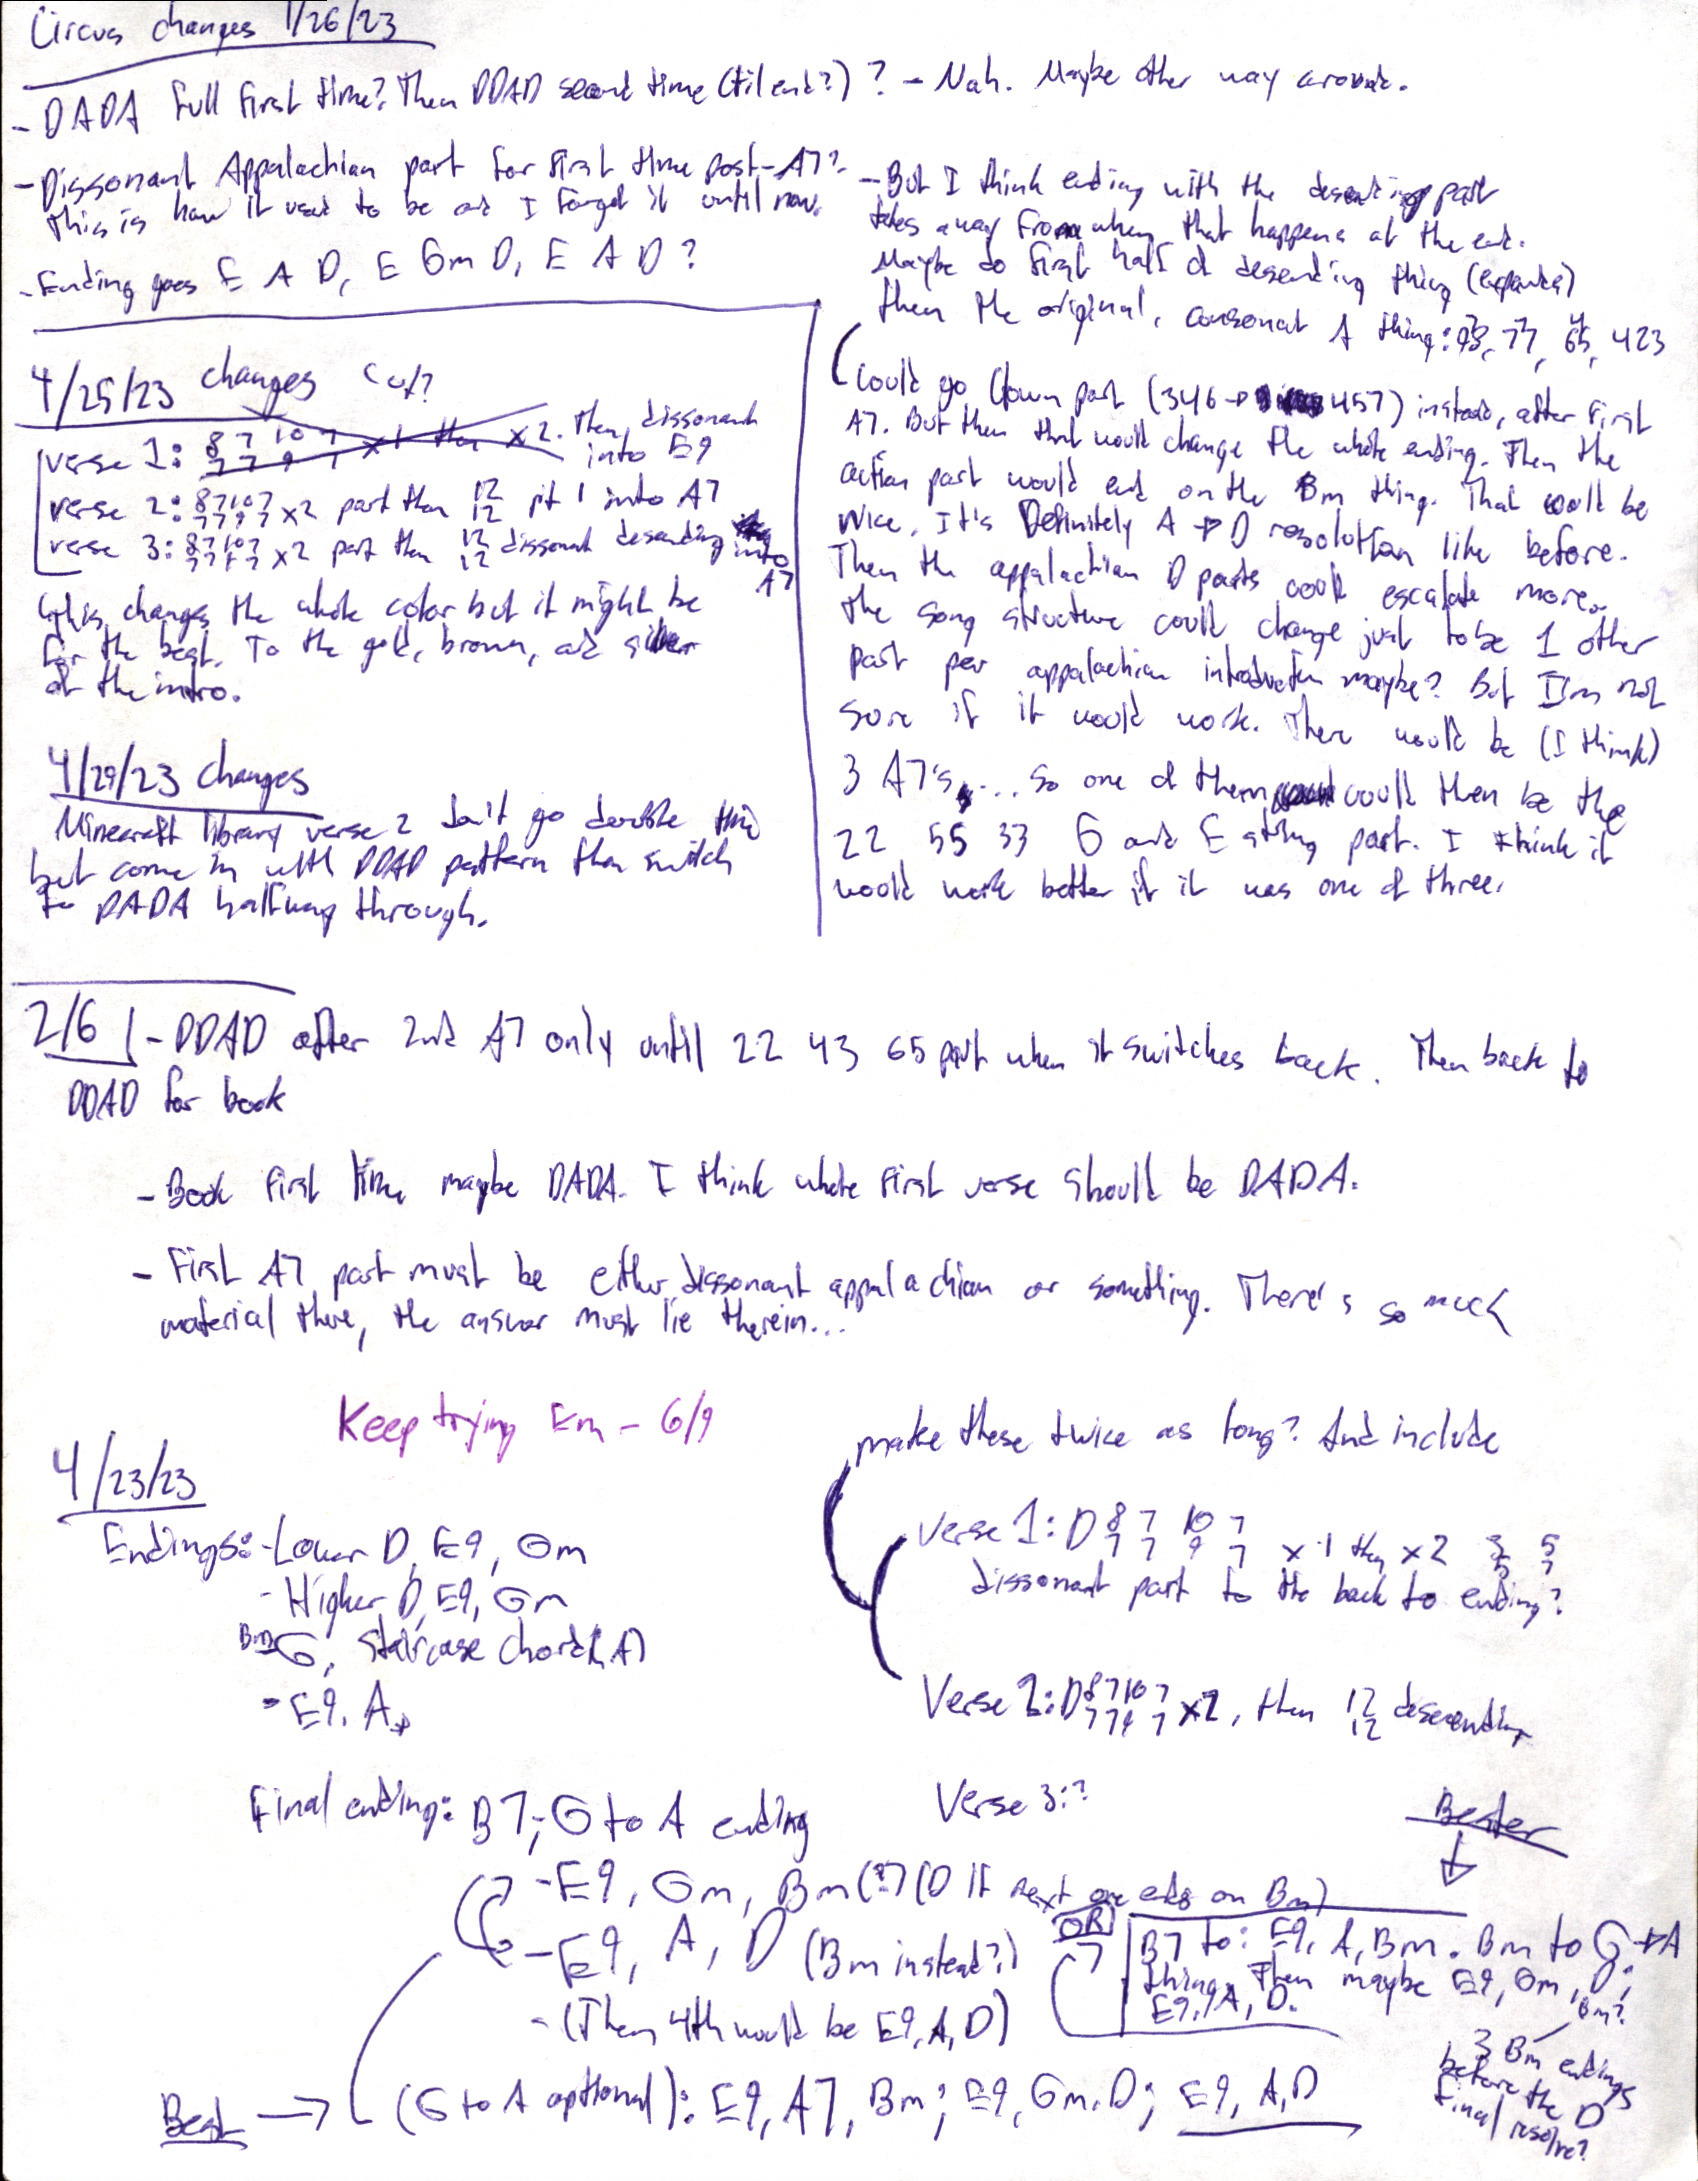 Circus changes 1/26/23
- DADA full first time? Then DDAD second time (til end?) ? - Nah. Maybe other way around.
- Dissonant Appalachian part for first time post-A7?
This is how it used to be and I forgot it until now.
- Ending goes E A D, E Gm D, E A D?
- But I think ending with the descending part
takes away from when that happens at the end.
Maybe do first half of descending thing (expanded)
then the original, consonant A thing: 77, 65, 423
Could go down part (346 → 457) instead, after first
A7. But then that would change the whole ending. Then the
action part would end on the Bm thing. That would be
nice. It's Definitely A → D resolution like before.
Then the appalachian D parts could escalate more.
The song structure could change just to be 1 other
part per appalachian introduction maybe? But I'm not
sure if it would work. There would be (I think)
3 A7's... so one of them could then be the
22 55 33 G and E string part. I think it
would work better if it was one of three.
4/25/23 changes cut?
verse 1: 8 7 10 7 x1 then x2. Then dissonant
7 7 9 7 into E9
verse 2: 8 7 10 7 x2 part then 12 pt 1 into A7
7 7 9 7 12
verse 3: 8 7 10 7 x2 part then 12 dissonant descending into
7 7 9 7 12 A7
this changes the whole color but it might be
for the best. To the gold, brown, and silver
of the intro.
4/29/23 changes
Minecraft library verse 2 don't go double
but come in with DDAD pattern then switch
to DADA halfway through.
2/6 - DDAD after 2nd A7 only until 22 43 65 part when it switches back. Then back to
DDAD for book
- Book first time maybe DADA. I think whole first verse should be DADA.
- First A7 part must be either dissonant appalachian or something. There's so much
material there, the answer must lie therein...
Keep trying Em - 6/9
4/23/23
Endings: - Lower D, E9, Gm
- Higher D, E9, Gm
Bm G, staircase chord (A)
- E9, A
make these twice as long? And include
Verse 1: D 8 7 10 7 x1 then x2 3 5
7 7 9 7 5 7
dissonant part to the back to ending?
Verse 2: D 8 7 10 7 x2, then 12 descending
7 7 9 7 12
Verse 3: ?
Final ending: B7; G to A ending
- E9, Gm, Bm (?) (D if next one ends on Bm)
- E9, A, D (Bm instead?)
- (Then 4th would be E9, A, D)
Best → (G to A optional): E9, A7, Bm; E9, Gm, D; E9, A, D
Bester
OR
B7 to: E9, A, Bm. Bm to G → A
thing. Then maybe E9, Gm, D;
E9, A, D. Bm?
3 Bm endings
before the D
final resolve?